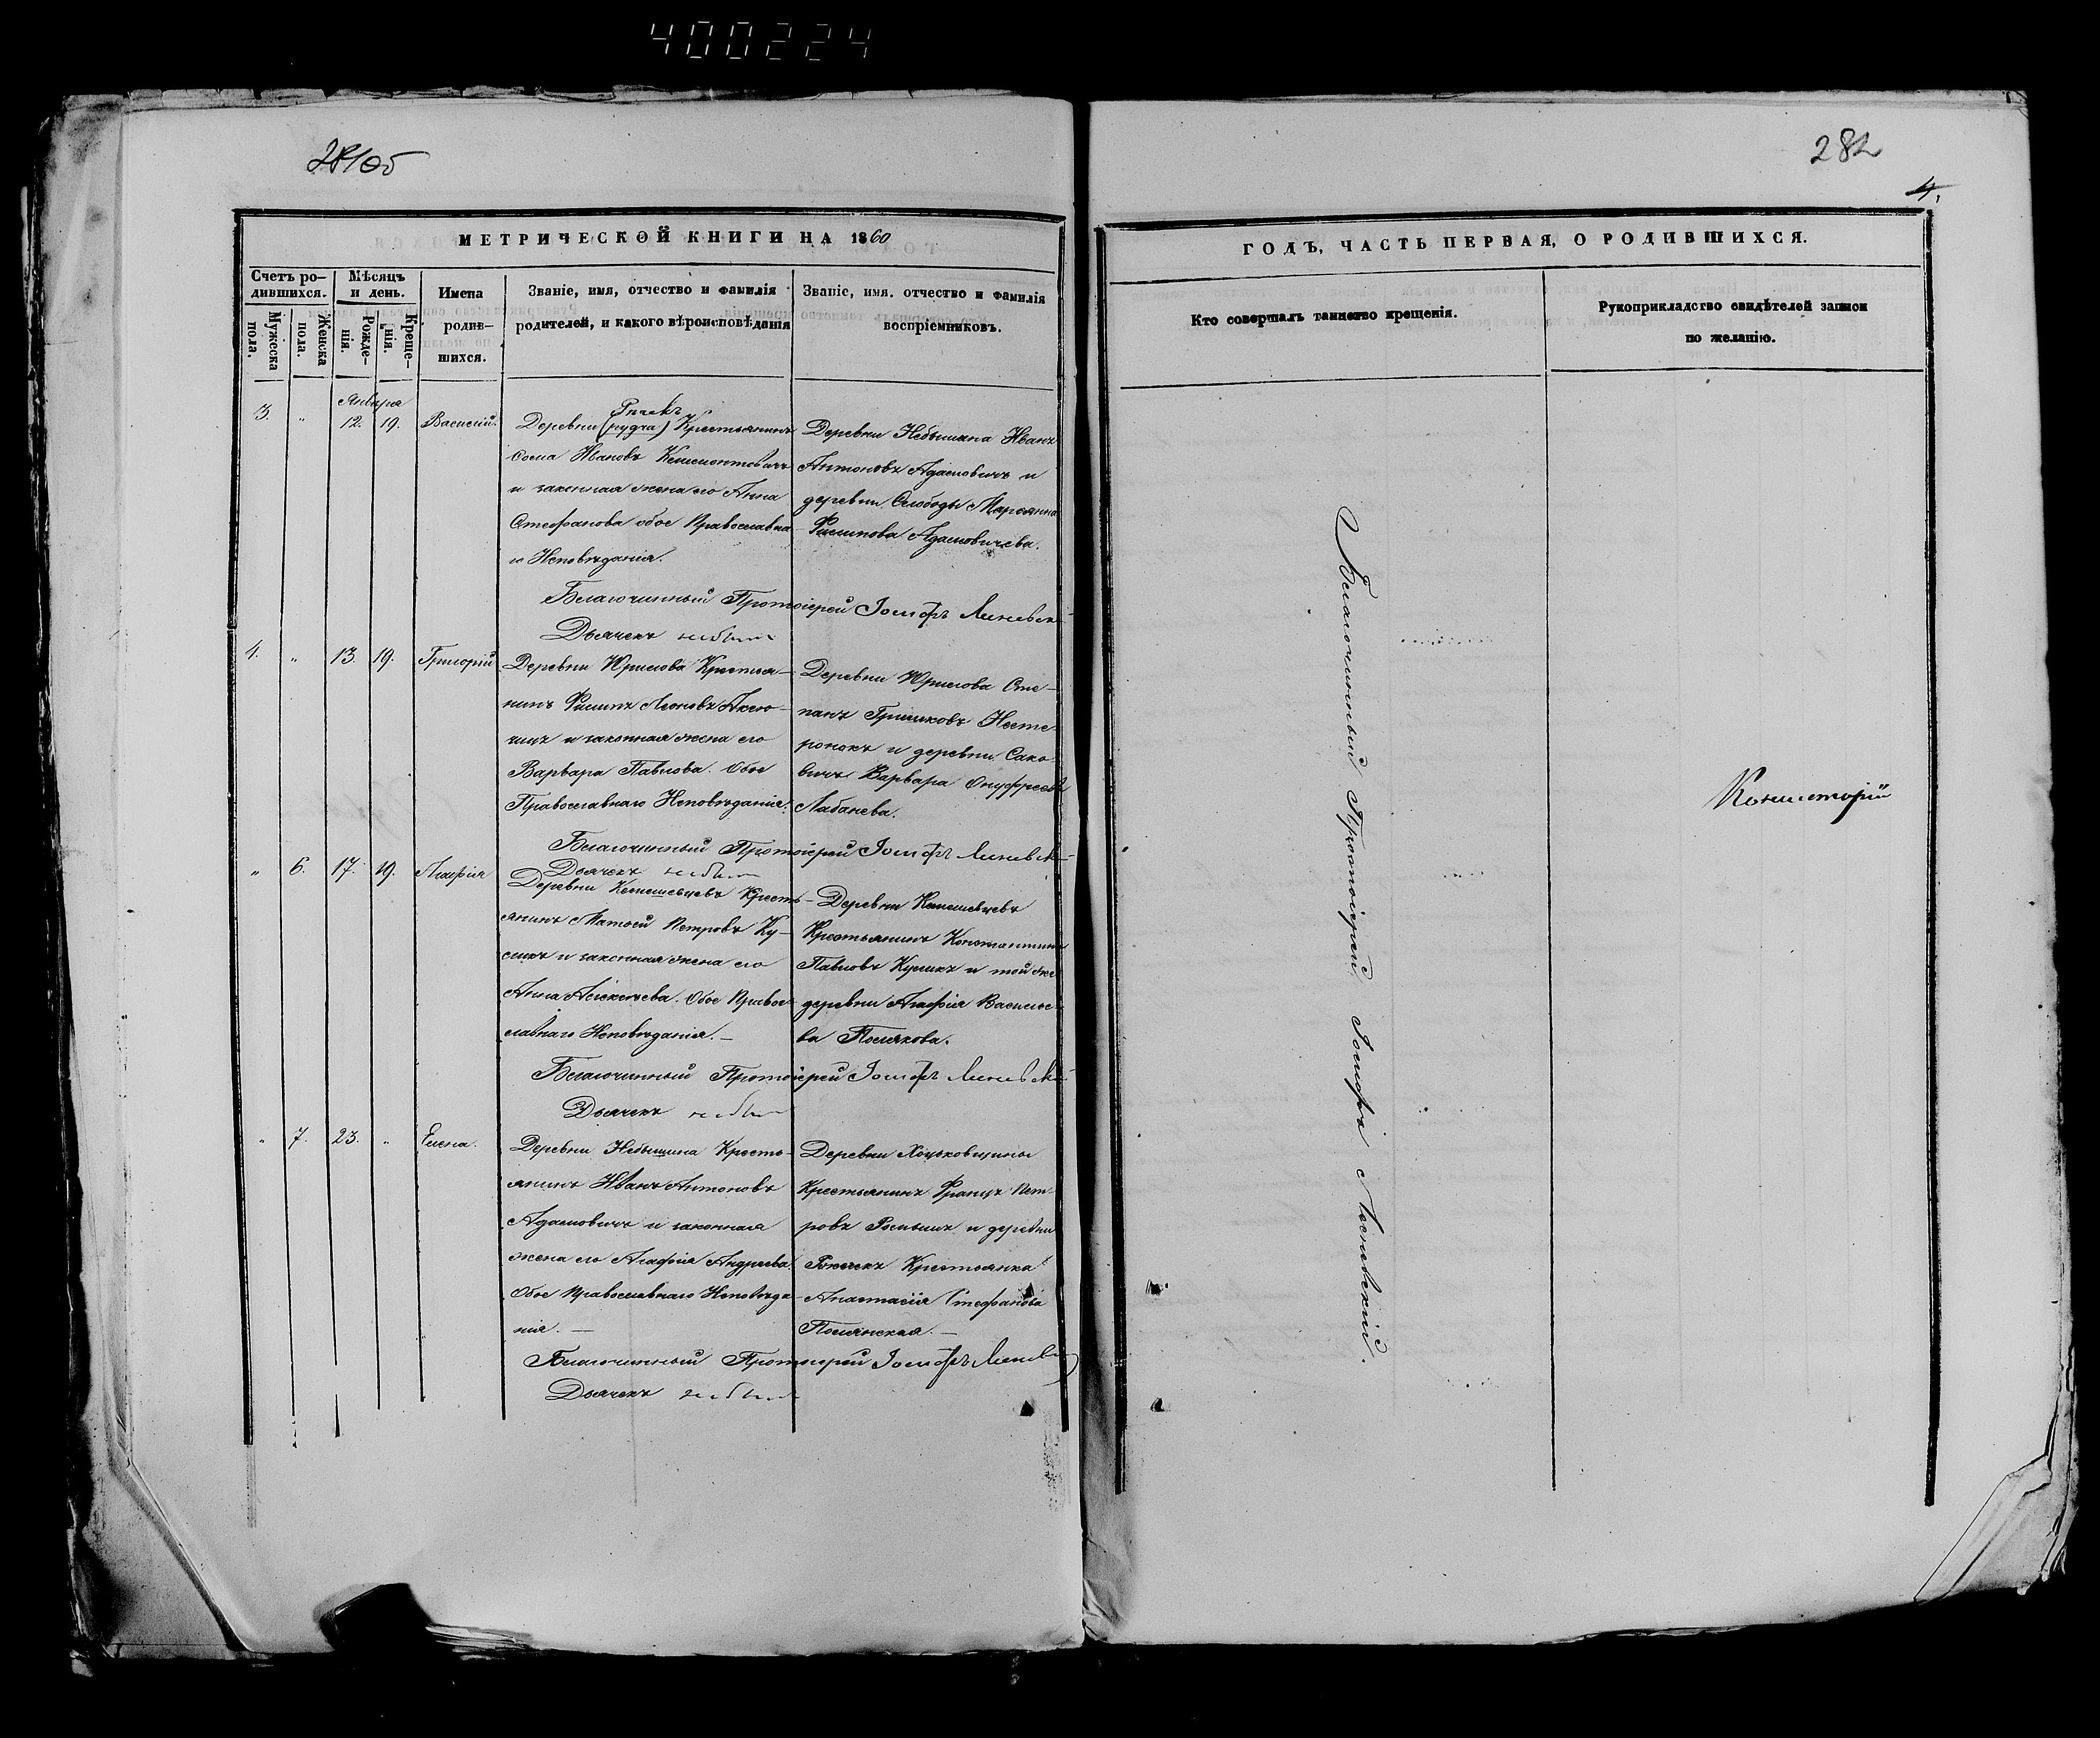 400224
281об
282
4.
МЕТРИЧЕСКОЙ КНИГИ НА 1860
ГОДЪ, ЧАСТЬ ПЕРВАЯ, О РОДИВШИХСЯ.
Счетъ ро-
дившихся.
Мужеска
пола.
Женска
пола.
Мѣсяцъ
и день.
Рожде-
нія.
Креще-
нія.
Имена
родив-
шихся.
Званіе, имя, отчество и фамилія
родителей, и какого вѣроисповѣданія
Званіе, имя, отчество и фамилія
воспріемниковъ.
Кто совершалъ таинство крещенія.
Рукоприкладство свидѣтелей записи
по желанію.
Января
3. " 12. 19. Василій.
Деревни (рудча) Крестьянинъ
Ѳома Ивановъ Клемонтовичъ
и законная жена его Анна
Стефанова обое Православна-
го Исповѣданія.
Деревни Небышина Иванъ
Антоновъ Адамовичъ и
деревни Слободы Марьянна
Филипова Адамовичева.
Благочинный Протоіерей Іосифъ Линевск
Дьячекъ
4. " 13. 19. Григорій
Деревни Юрилова Крестья-
нинъ Филипъ Леоновъ Аксю-
чицъ и законная жена его
Варвара Павлова. Обое
Православнаго Исповѣданія.
Деревни Юрилова Сте-
панъ Гришковъ Несте-
ронокъ и деревни Сако-
вичъ Варвара Онуфреева
Лабанева.
Благочинный Протоіерей Іосифъ Линевск
Дьячекъ
" 6. 17. 19. Агафія
Деревни Крестъ-
янинъ Матвѣй Петровъ Ку-
ликъ и законная жена его
Анна Алексѣева. Обое Право-
славнаго Исповѣданія.–
Деревни
Крестьянинъ Константинъ
Павловъ Куликъ и той же
деревни Агафія Василье-
ва Полякова.
Благочинный Протоіерей Іосифъ Линевск
Дьячекъ
" 7. 23. " Елена.
Деревни Небышина Кресть-
янинъ Иванъ Антоновъ
Адамовичъ и законная
жена его Агафія Андреева.
Обое Православнаго Исповѣда-
нія.–
Деревни Хоцьковщины
Крестьянинъ Францъ Пет-
ровъ и деревни
Крестьянка
Анастасія Стефанова
Полянская.–
Благочинный Протоіерей Іосифъ Линевс
Дьячекъ
Благочинный Протоіерей Іосифъ Линевскій.
Консисторіи